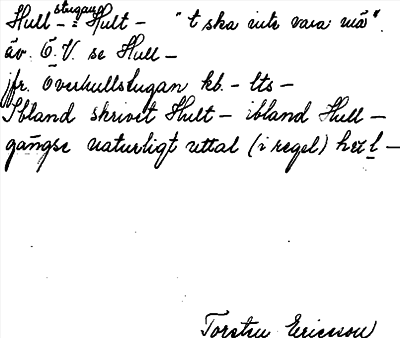 Hull- stugan : Hult - "t ska inte vara mä".
äv. Ö.V. se Hull -
jfr. Överhullstugan kb. - lts -
Ibland skrivet Hult - ibland Hull -
gängse naturligt uttal (i regel) het l -
Torsten Ericsson